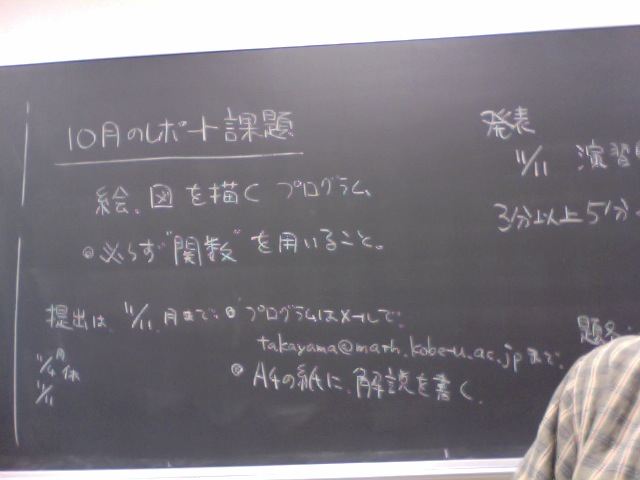 10月のレポート課題
絵、図を描く プログラム
◎必らず"関数"を用いること。
提出は、11/11 月まで。◎プログラムはメールで、
takayama@math.kobe-u.ac.jp まで。
◎A4の紙に、解説を書く。
11/4 月 休
11/11
発表
11/11 演習
3分以上5分
題